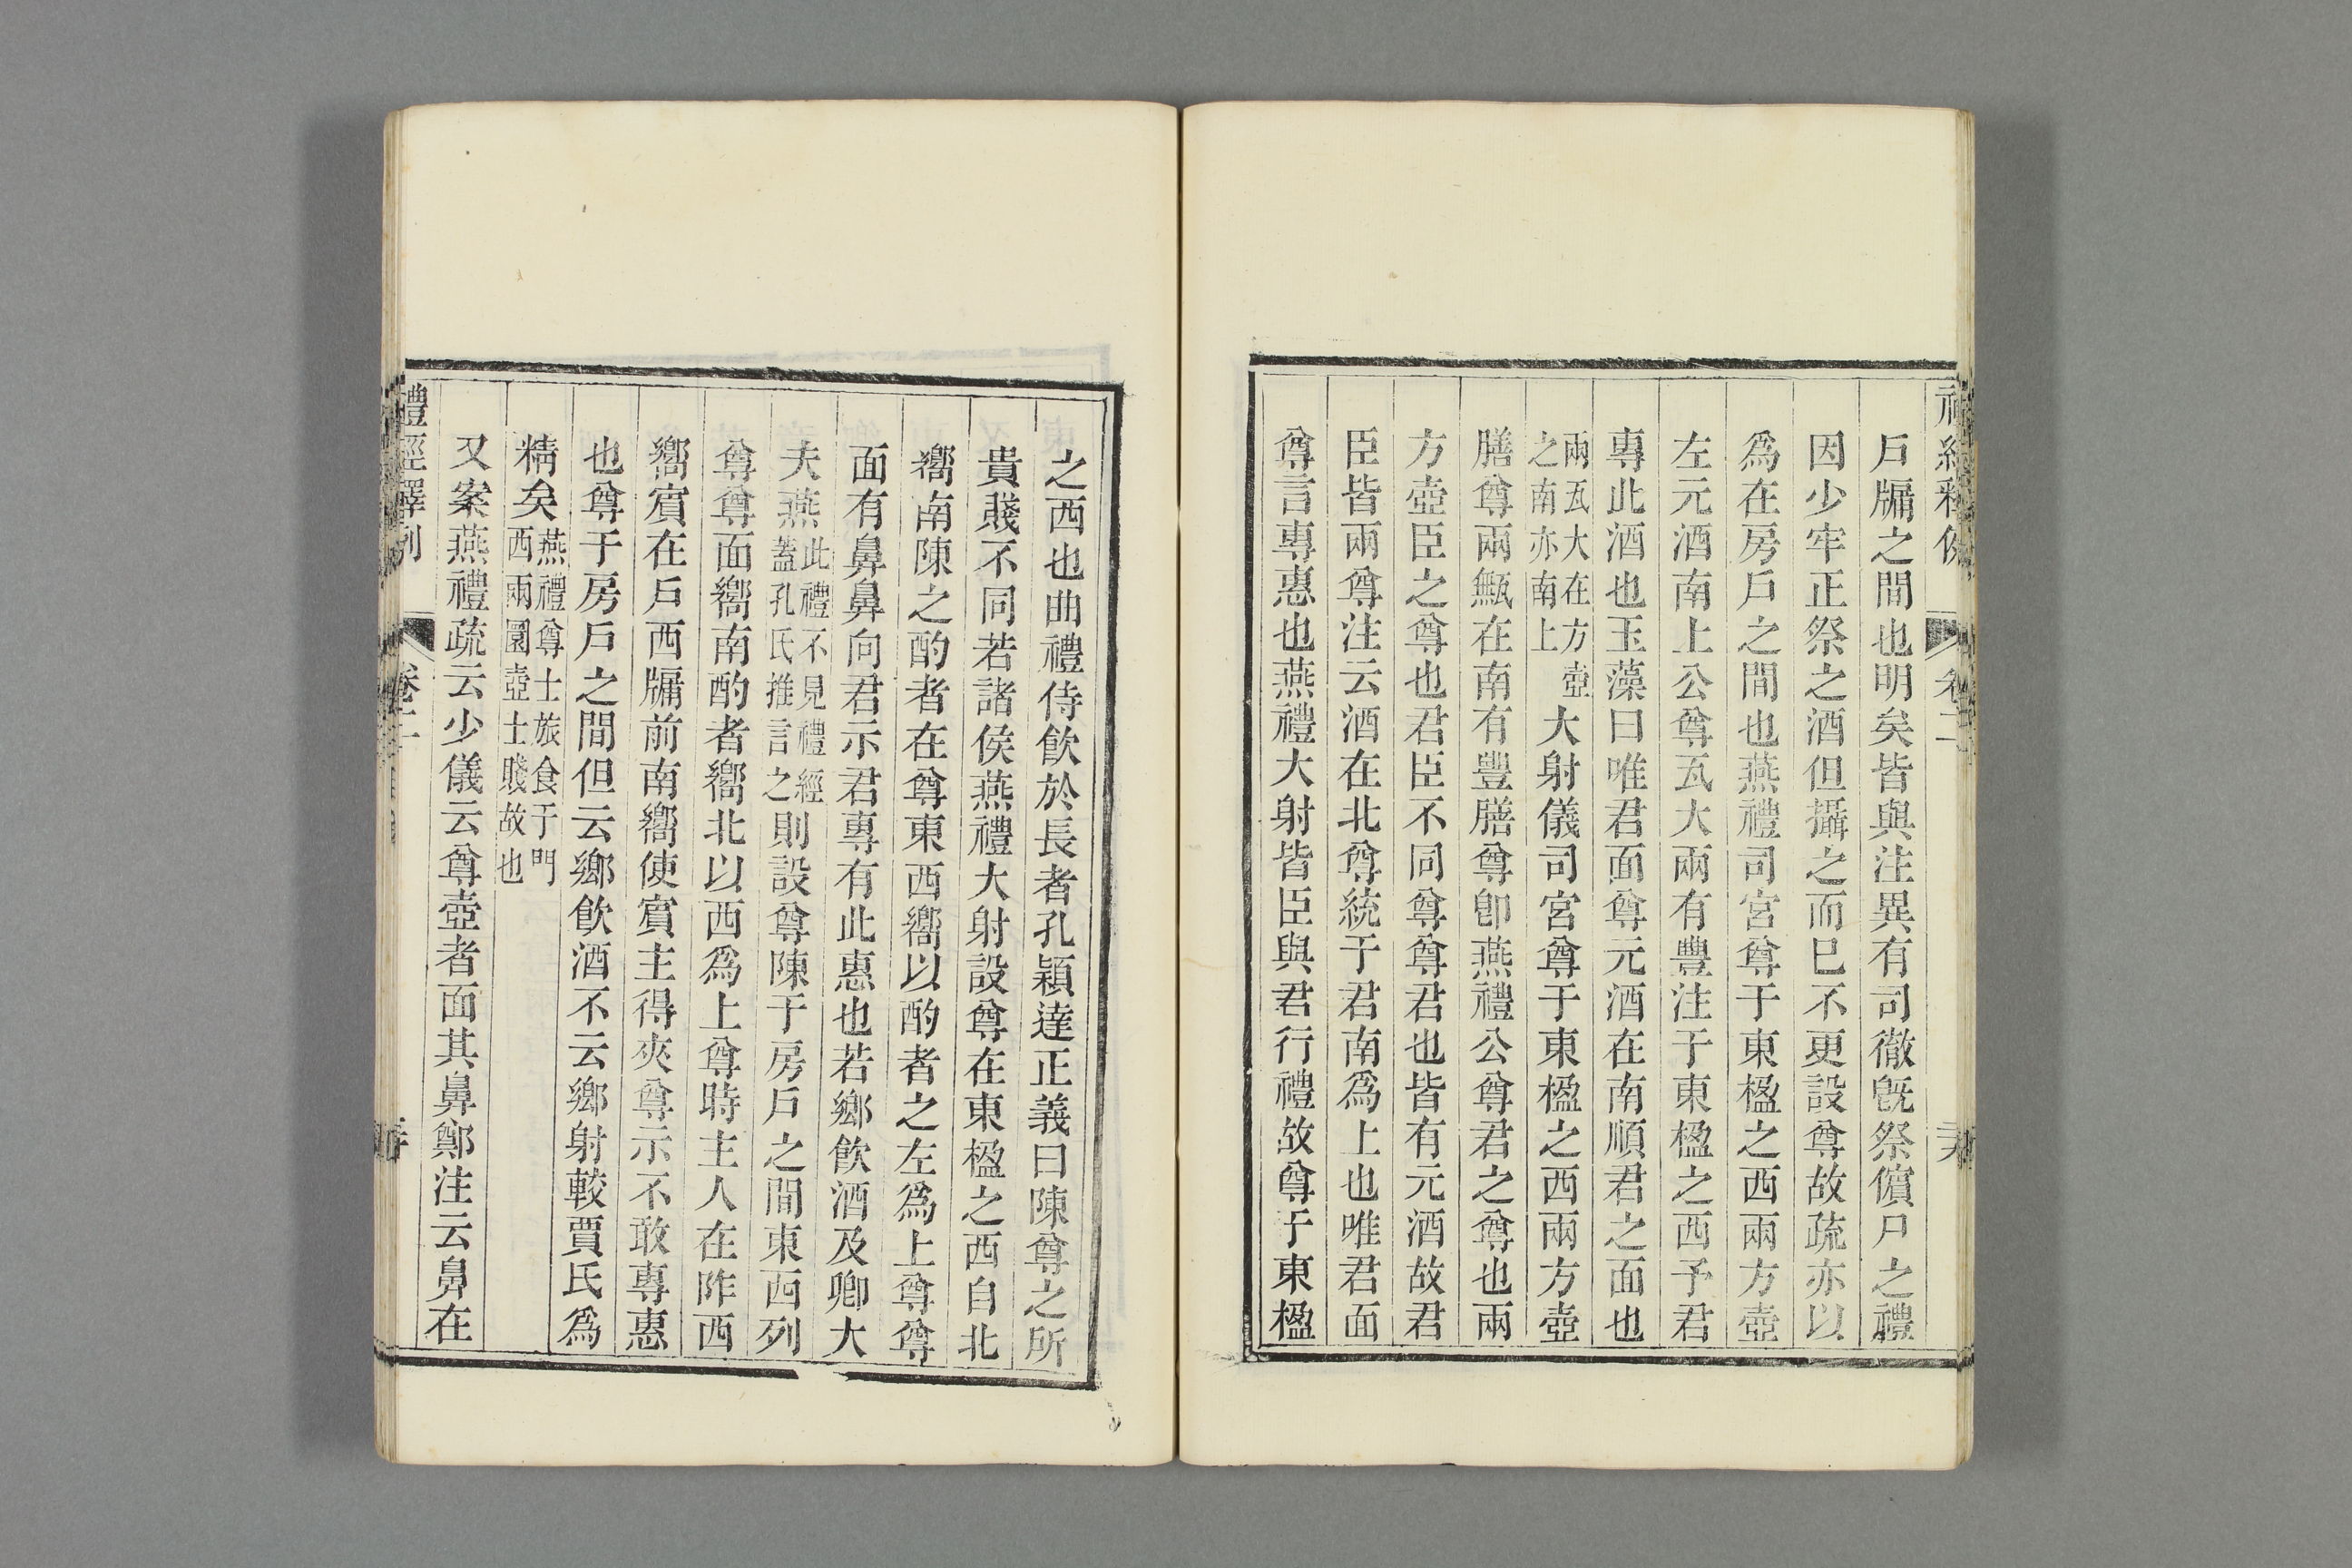 戶牖之間也明矣皆與注異有司徹旣祭儐尸之禮
因少牢正祭之酒但攝之而已不更設尊故疏亦以
爲在房戶之間也燕禮司宮尊于東楹之西兩方壺
左元酒南上公尊瓦大兩有豐注于東楹之西予君
專此酒也玉藻曰唯君面尊元酒在南順君之面也
兩瓦大在方壺
之南亦南上
大射儀司宮尊于東楹之西兩方壺
膳尊兩甒在南有豐膳尊卽燕禮公尊君之尊也兩
方壺臣之尊也君臣不同尊尊君也皆有元酒故君
臣皆兩尊注云酒在北尊統于君南爲上也唯君面
尊言專惠也燕禮大射皆臣與君行禮故尊于東楹
之西也曲禮侍飮於長者孔穎達正義曰陳尊之所
貴賤不同若諸侯燕禮大射設尊在東楹之西自北
嚮南陳之酌者在尊東西嚮以酌者之左爲上尊尊
面有鼻鼻向君示君專有此惠也若鄉飮酒及卿大
夫燕
此禮不見禮經
蓋孔氏推言之
則設尊陳于房戶之間東西列
尊尊面嚮南酌者嚮北以西爲上尊時主人在阼西
嚮賓在戶西牖前南嚮使賓主得夾尊示不敢專惠
也尊于房戶之間但云鄉飮酒不云鄉射較賈氏爲
精矣
燕禮尊士旅食于門
西兩圜壺士賤故也
又案燕禮疏云少儀云尊壺者面其鼻鄭注云鼻在
禮經釋例
卷二